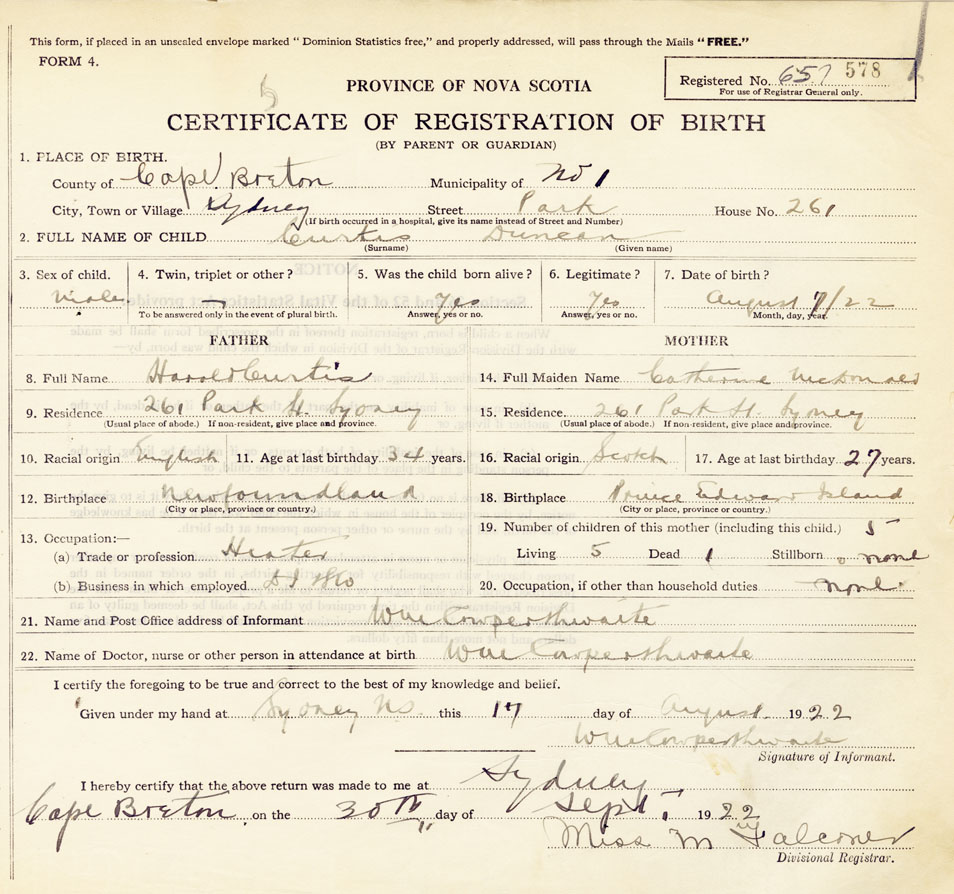 This form, if placed in an unsealed envelope marked "Dominion Statistics free," and properly addressed, will pass through the Mails "FREE."
FORM 4.
PROVINCE OF NOVA SCOTIA
Registered No. 657 578
For use of Registrar General only.
CERTIFICATE OF REGISTRATION OF BIRTH
(BY PARENT OR GUARDIAN)
1. PLACE OF BIRTH.
County of Cape Breton Municipality of No 1
City, Town or Village Sydney Street Park House No. 261
(If birth occurred in a hospital, give its name instead of Street and Number)
2. FULL NAME OF CHILD Curtis Duncan
(Surname) (Given name)
3. Sex of child. 4. Twin, triplet or other? 5. Was the child born alive? 6. Legitimate? 7. Date of birth?
Male — Yes Yes August 7/22
To be answered only in the event of plural birth. Answer, yes or no. Answer, yes or no. Month, day, year.
FATHER MOTHER
8. Full Name Harold Curtis 14. Full Maiden Name Catherine McDonald
9. Residence 261 Park St. Sydney 15. Residence. 261 Park St. Sydney
(Usual place of abode.) If non-resident, give place and province. (Usual place of abode.) If non-resident, give place and province.
10. Racial origin English 11. Age at last birthday 34 years. 16. Racial origin Scotch 17. Age at last birthday 27 years.
12. Birthplace Newfoundland 18. Birthplace Prince Edward Island
(City or place, province or country.) (City or place, province or country.)
13. Occupation:— 19. Number of children of this mother (including this child.) 5
(a) Trade or profession Heater Living 5 Dead 1 Stillborn none
(b) Business in which employed 20. Occupation, if other than household duties none
21. Name and Post Office address of Informant Wm Cowperthwaite
22. Name of Doctor, nurse or other person in attendance at birth Wm Cowperthwaite
I certify the foregoing to be true and correct to the best of my knowledge and belief.
Given under my hand at Sydney N.S. this 17 day of August 1922
Wm Cowperthwaite
Signature of Informant.
I hereby certify that the above return was made to me at Sydney
Cape Breton on the 30th day of Sept. 1922
Miss M Falconer
Divisional Registrar.